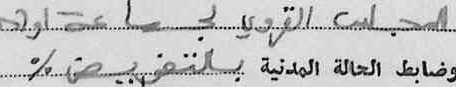 المجلس القروي لجماعة اولاد
وضابط الحالة المدنية بالتفويض %